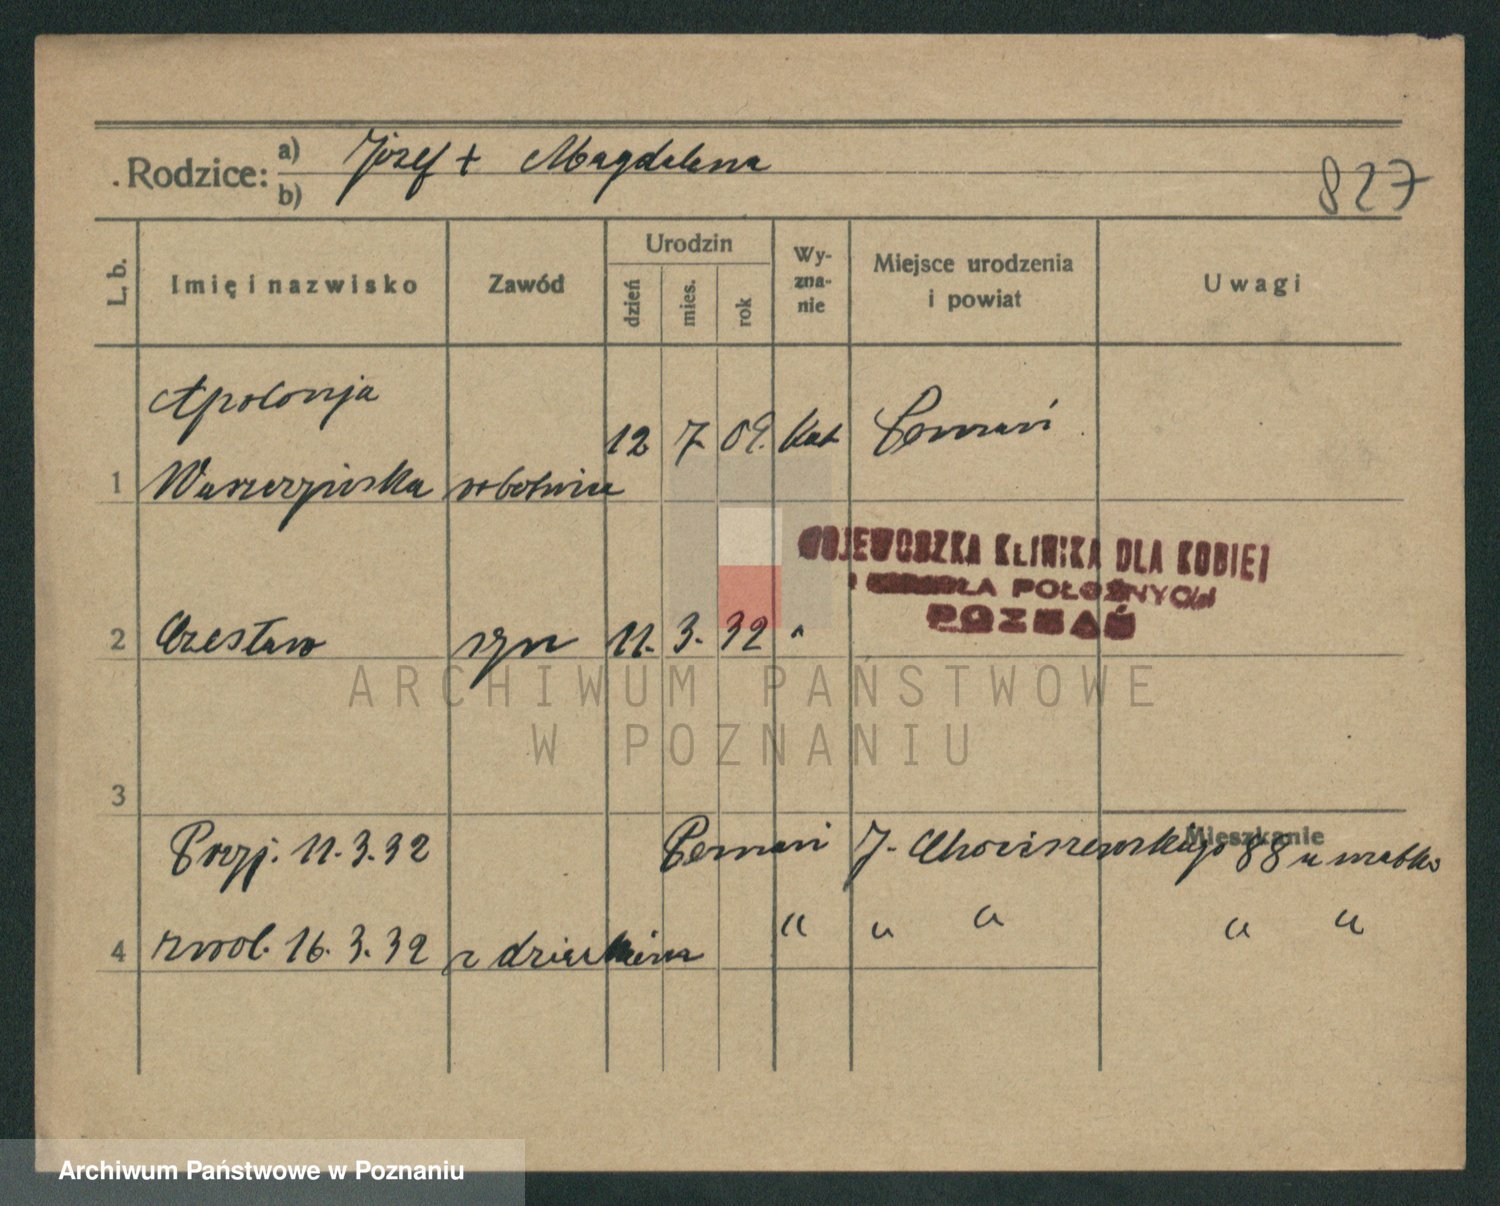 Rodzice: a) Józef + Magdalena
b)
827
L. b. Imię i nazwisko Zawód Urodzin dzień mies. rok Wy-zna-nie Miejsce urodzenia i powiat Uwagi
Apolonja
12 7 09. kat Poznań
1 robotnica
WOJEWODZKA KLINIKA DLA KOBIET
POŁOŻNYCH
POZNAŃ
2 Czesław syn 11. 3. 32 "
ARCHIWUM PAŃSTWOWE
W POZNANIU
3
Mieszkanie
Przyj. 11. 3. 32 Poznań J. Chociszewskiego 88 u matki
4 zwol. 16. 3. 32 z dzieckiem " " " " "
Archiwum Państwowe w Poznaniu